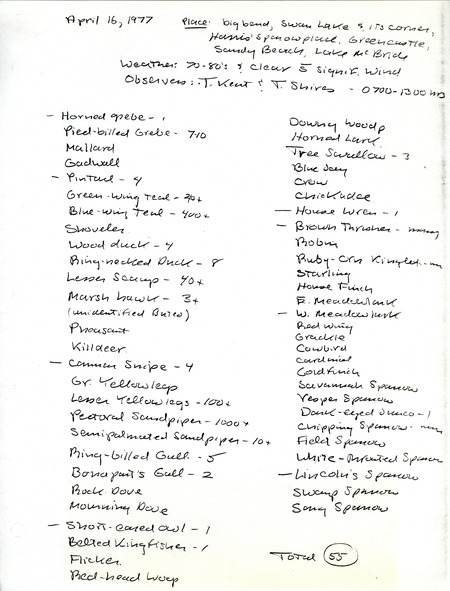 April 16, 1977 Place: big bend, Swan Lake & its corner,
Harris's Sparrow place, Greencastle,
Sandy Beach, Lake McBride
Weather: 70-80's & clear s signif. wind
Observers: T. Kent & T. Shires - 0700-1300 hrs
- Horned grebe - 1
Pied-billed Grebe - 7-10
Mallard
Gadwall
- Pintail - 4
Green-wing Teal - 20+
Blue-wing Teal - 400+
Shoveler
Wood duck - 4
Ring-necked Duck - 8
Lesser Scaup - 40+
Marsh hawk - 3+
(unidentified Buteo)
Pheasant
Killdeer
- Common Snipe - 4
Gr. Yellowlegs
Lesser Yellowlegs - 100+
Pectoral Sandpiper - 1000+
Semipalmated Sandpiper - 10+
Ring-billed Gull - 5
Bonapart's Gull - 2
Rock Dove
Mourning Dove
- Short-eared Owl - 1
Belted Kingfisher - 1
Flicker
Red-head woop
Downy woodp
Horned Lark
Tree Swallow - 3
Blue Jay
Crow
Chickadee
- House Wren - 1
- Brown Thrasher - many
Robin
Ruby-crn Kinglet - m
Starling
House Finch
E. Meadowlark
- W. Meadowlark
Redwing
Grackle
Cowbird
Cardinal
Goldfinch
Savannah Sparrow
Vesper Sparrow
Dark-eyed Junco - 1
Chipping Sparrow - many
Field Sparrow
White-throated Sparrow
- Lincoln's Sparrow
Swamp Sparrow
Song Sparrow
Total 55